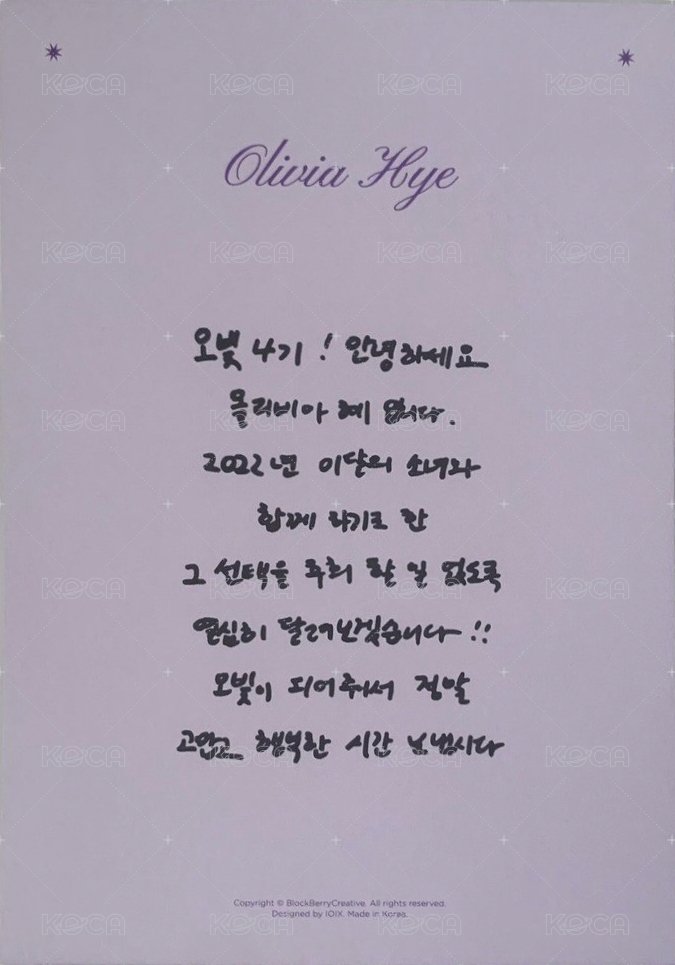 Olivia Hye
오빛 4기! 안녕하세요
올리비아 혜 입니다.
2022년 이달의 소녀와
함께 하기로 한
그 선택을 후회 할 일 없도록
열심히 달려나가겠습니다!!
오빛이 되어줘서 정말
고맙고 행복한 시간 보냅시다
Copyright © BlockBerryCreative. All rights reserved.
Designed by IOIX. Made in Korea.
KOCA